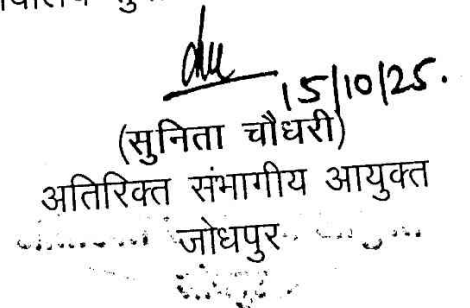 15/10/25.
(सुनिता चौधरी)
अतिरिक्त संभागीय आयुक्त
जोधपुर